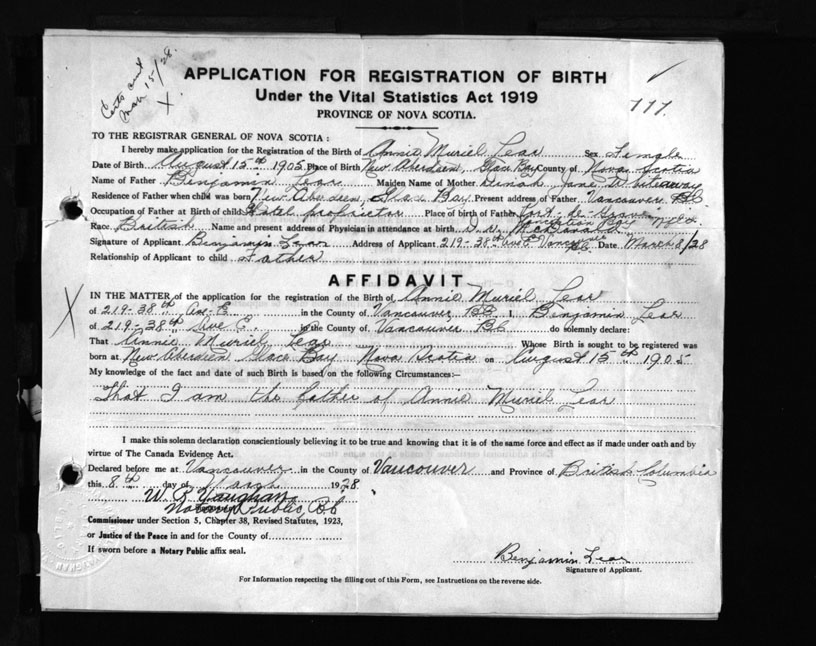 Certs sent
Mar 15/28.
X.
APPLICATION FOR REGISTRATION OF BIRTH
Under the Vital Statistics Act 1919
PROVINCE OF NOVA SCOTIA.
111.
TO THE REGISTRAR GENERAL OF NOVA SCOTIA :
I hereby make application for the Registration of the Birth of Annie Muriel Lear Sex Female
Date of Birth August 15th 1905 Place of Birth New Aberdeen, Glace Bay County of Nova Scotia
Name of Father Benjamin Lear Maiden Name of Mother Dinah Jane
Residence of Father when child was born New Aberdeen, Glace Bay Present address of Father Vancouver BC
Occupation of Father at Birth of child Hotel proprietor Place of birth of Father
Race British Name and present address of Physician in attendance at birth McDonald
Signature of Applicant Benjamin Lear Address of Applicant 219-38th Ave E Vancouver BC Date March 8/28
Relationship of Applicant to child Father
AFFIDAVIT
X
IN THE MATTER of the application for the registration of the Birth of Annie Muriel Lear
of 219-38th Ave E. in the County of Vancouver BC I, Benjamin Lear
of 219-38th Ave E. in the County of Vancouver BC do solemnly declare:
That Annie Muriel Lear Whose Birth is sought to be registered was
born at New Aberdeen Glace Bay Nova Scotia on August 15th 1905
My knowledge of the fact and date of such Birth is based on the following Circumstances:—
That I am the father of Annie Muriel Lear
I make this solemn declaration conscientiously believing it to be true and knowing that it is of the same force and effect as if made under oath and by
virtue of The Canada Evidence Act.
Declared before me at Vancouver in the County of Vancouver and Province of British Columbia
this 8th day of March 1928.
W. P. Vaughan
Notary Public, B.C
Commissioner under Section 5, Chapter 38, Revised Statutes, 1923,
or Justice of the Peace in and for the County of
If sworn before a Notary Public affix seal.
Benjamin Lear
Signature of Applicant.
For Information respecting the filling out of this Form, see Instructions on the reverse side.